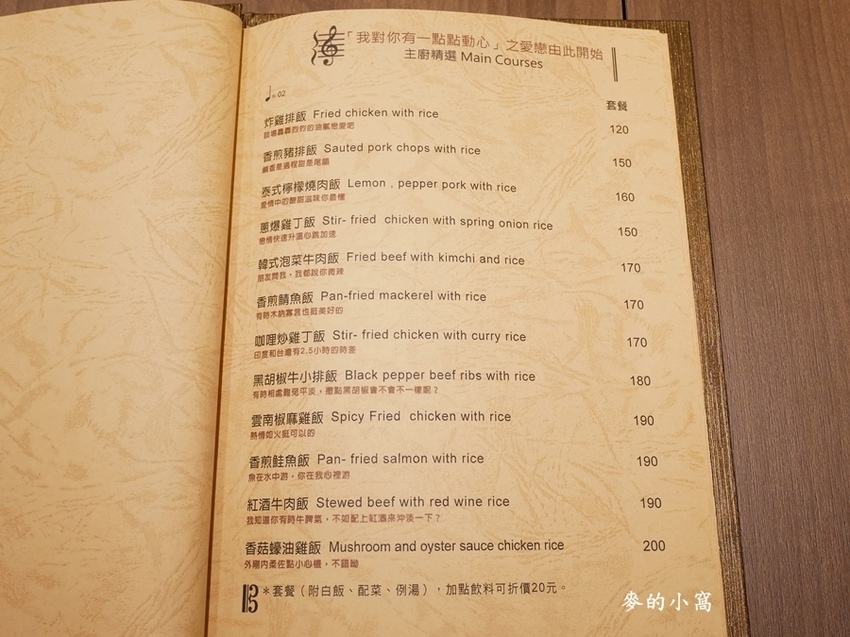 「我對你有一點點動心」之愛戀由此開始
主廚精選 Main Courses
02
套餐
炸雞排飯 Fried chicken with rice 120
香煎豬排飯 Sauted pork chops with rice 150
鹹香是過程甜是尾韻
泰式檸檬燒肉飯 Lemon , pepper pork with rice 160
愛情中的酸甜滋味你最懂
蔥爆雞丁飯 Stir- fried chicken with spring onion rice 150
戀情快速升溫心跳加速
韓式泡菜牛肉飯 Fried beef with kimchi and rice 170
朋友問我，我都說你微辣
香煎鯖魚飯 Pan-fried mackerel with rice 170
有時木納寡言也挺美好的
咖哩炒雞丁飯 Stir- fried chicken with curry rice 170
印度和台灣有2.5小時的時差
黑胡椒牛小排飯 Black pepper beef ribs with rice 180
有時相處難免平淡，撒點黑胡椒會不會不一樣呢？
雲南椒麻雞飯 Spicy Fried chicken with rice 190
熱情如火挺可以的
香煎鮭魚飯 Pan- fried salmon with rice 190
魚在水中游，你在我心裡游
紅酒牛肉飯 Stewed beef with red wine rice 190
我知道你有時牛脾氣，不如配上紅酒來沖淡一下？
香菇蠔油雞飯 Mushroom and oyster sauce chicken rice 200
外剛內柔佐點小心機，不錯呦
＊套餐（附白飯、配菜、例湯），加點飲料可折價20元。
麥的小窩